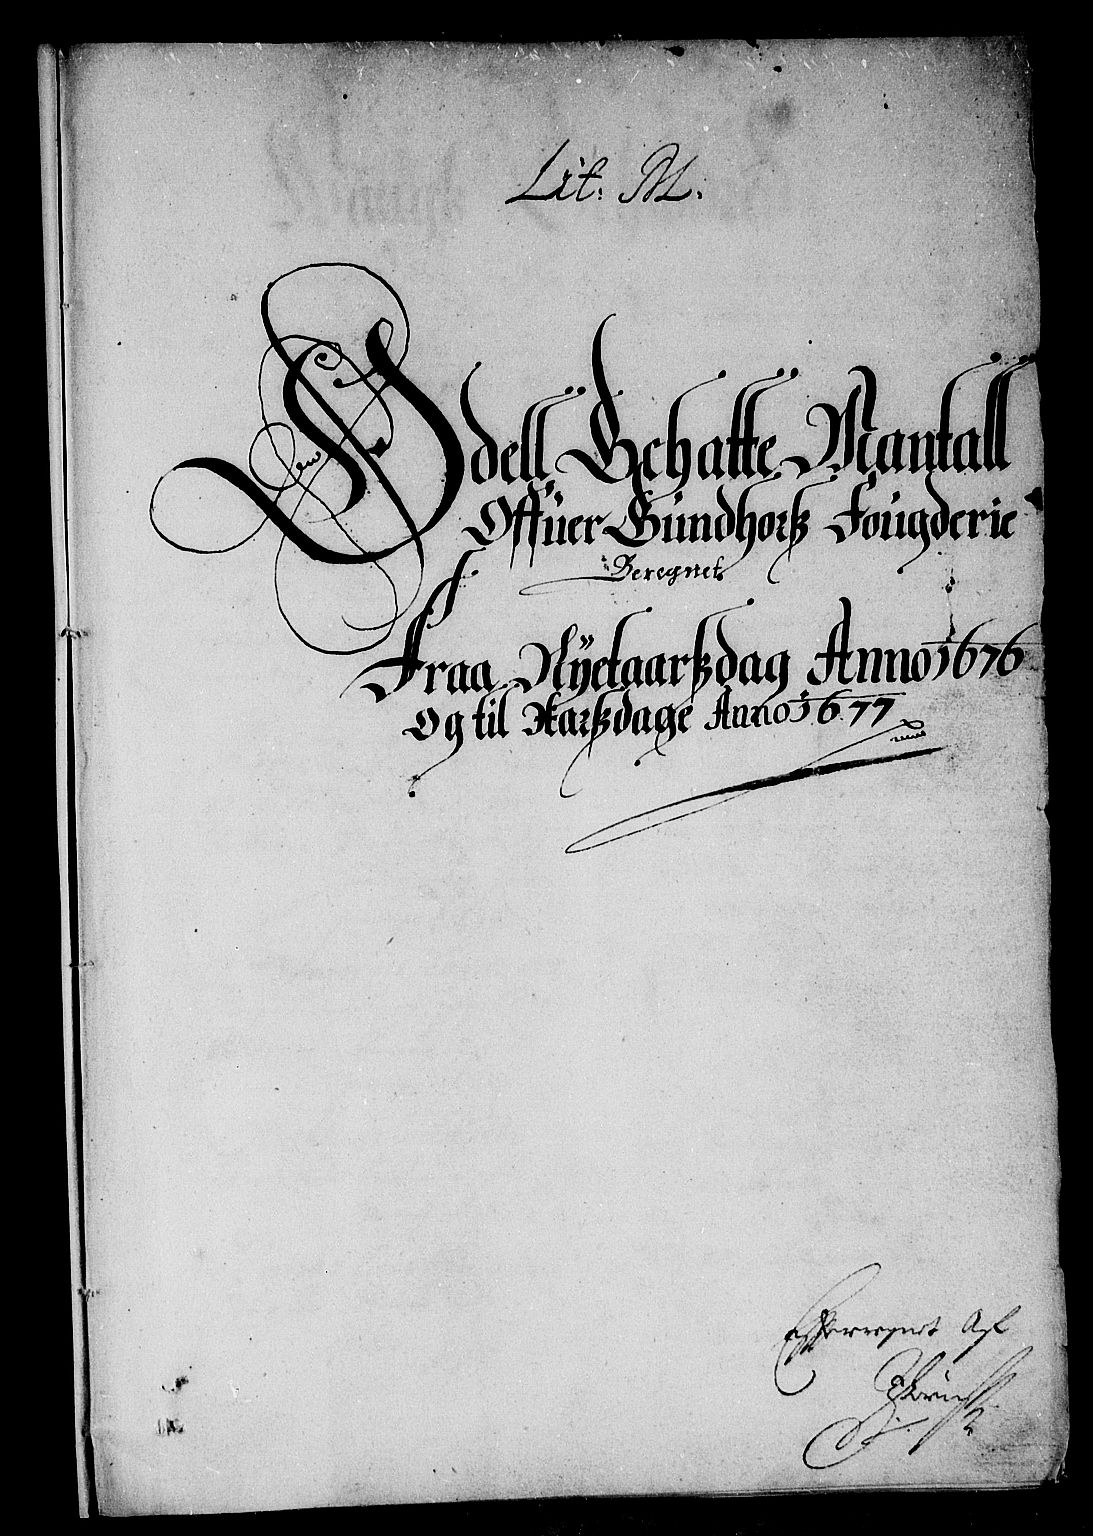 Lit: M.
Odell Schatte Mantall
Offuer Sundhorß Fougderie
Beregnet
Fraa Nyetaarßdag Anno 1676
Og til Aarßdage Anno 1677
Efterregnet Af